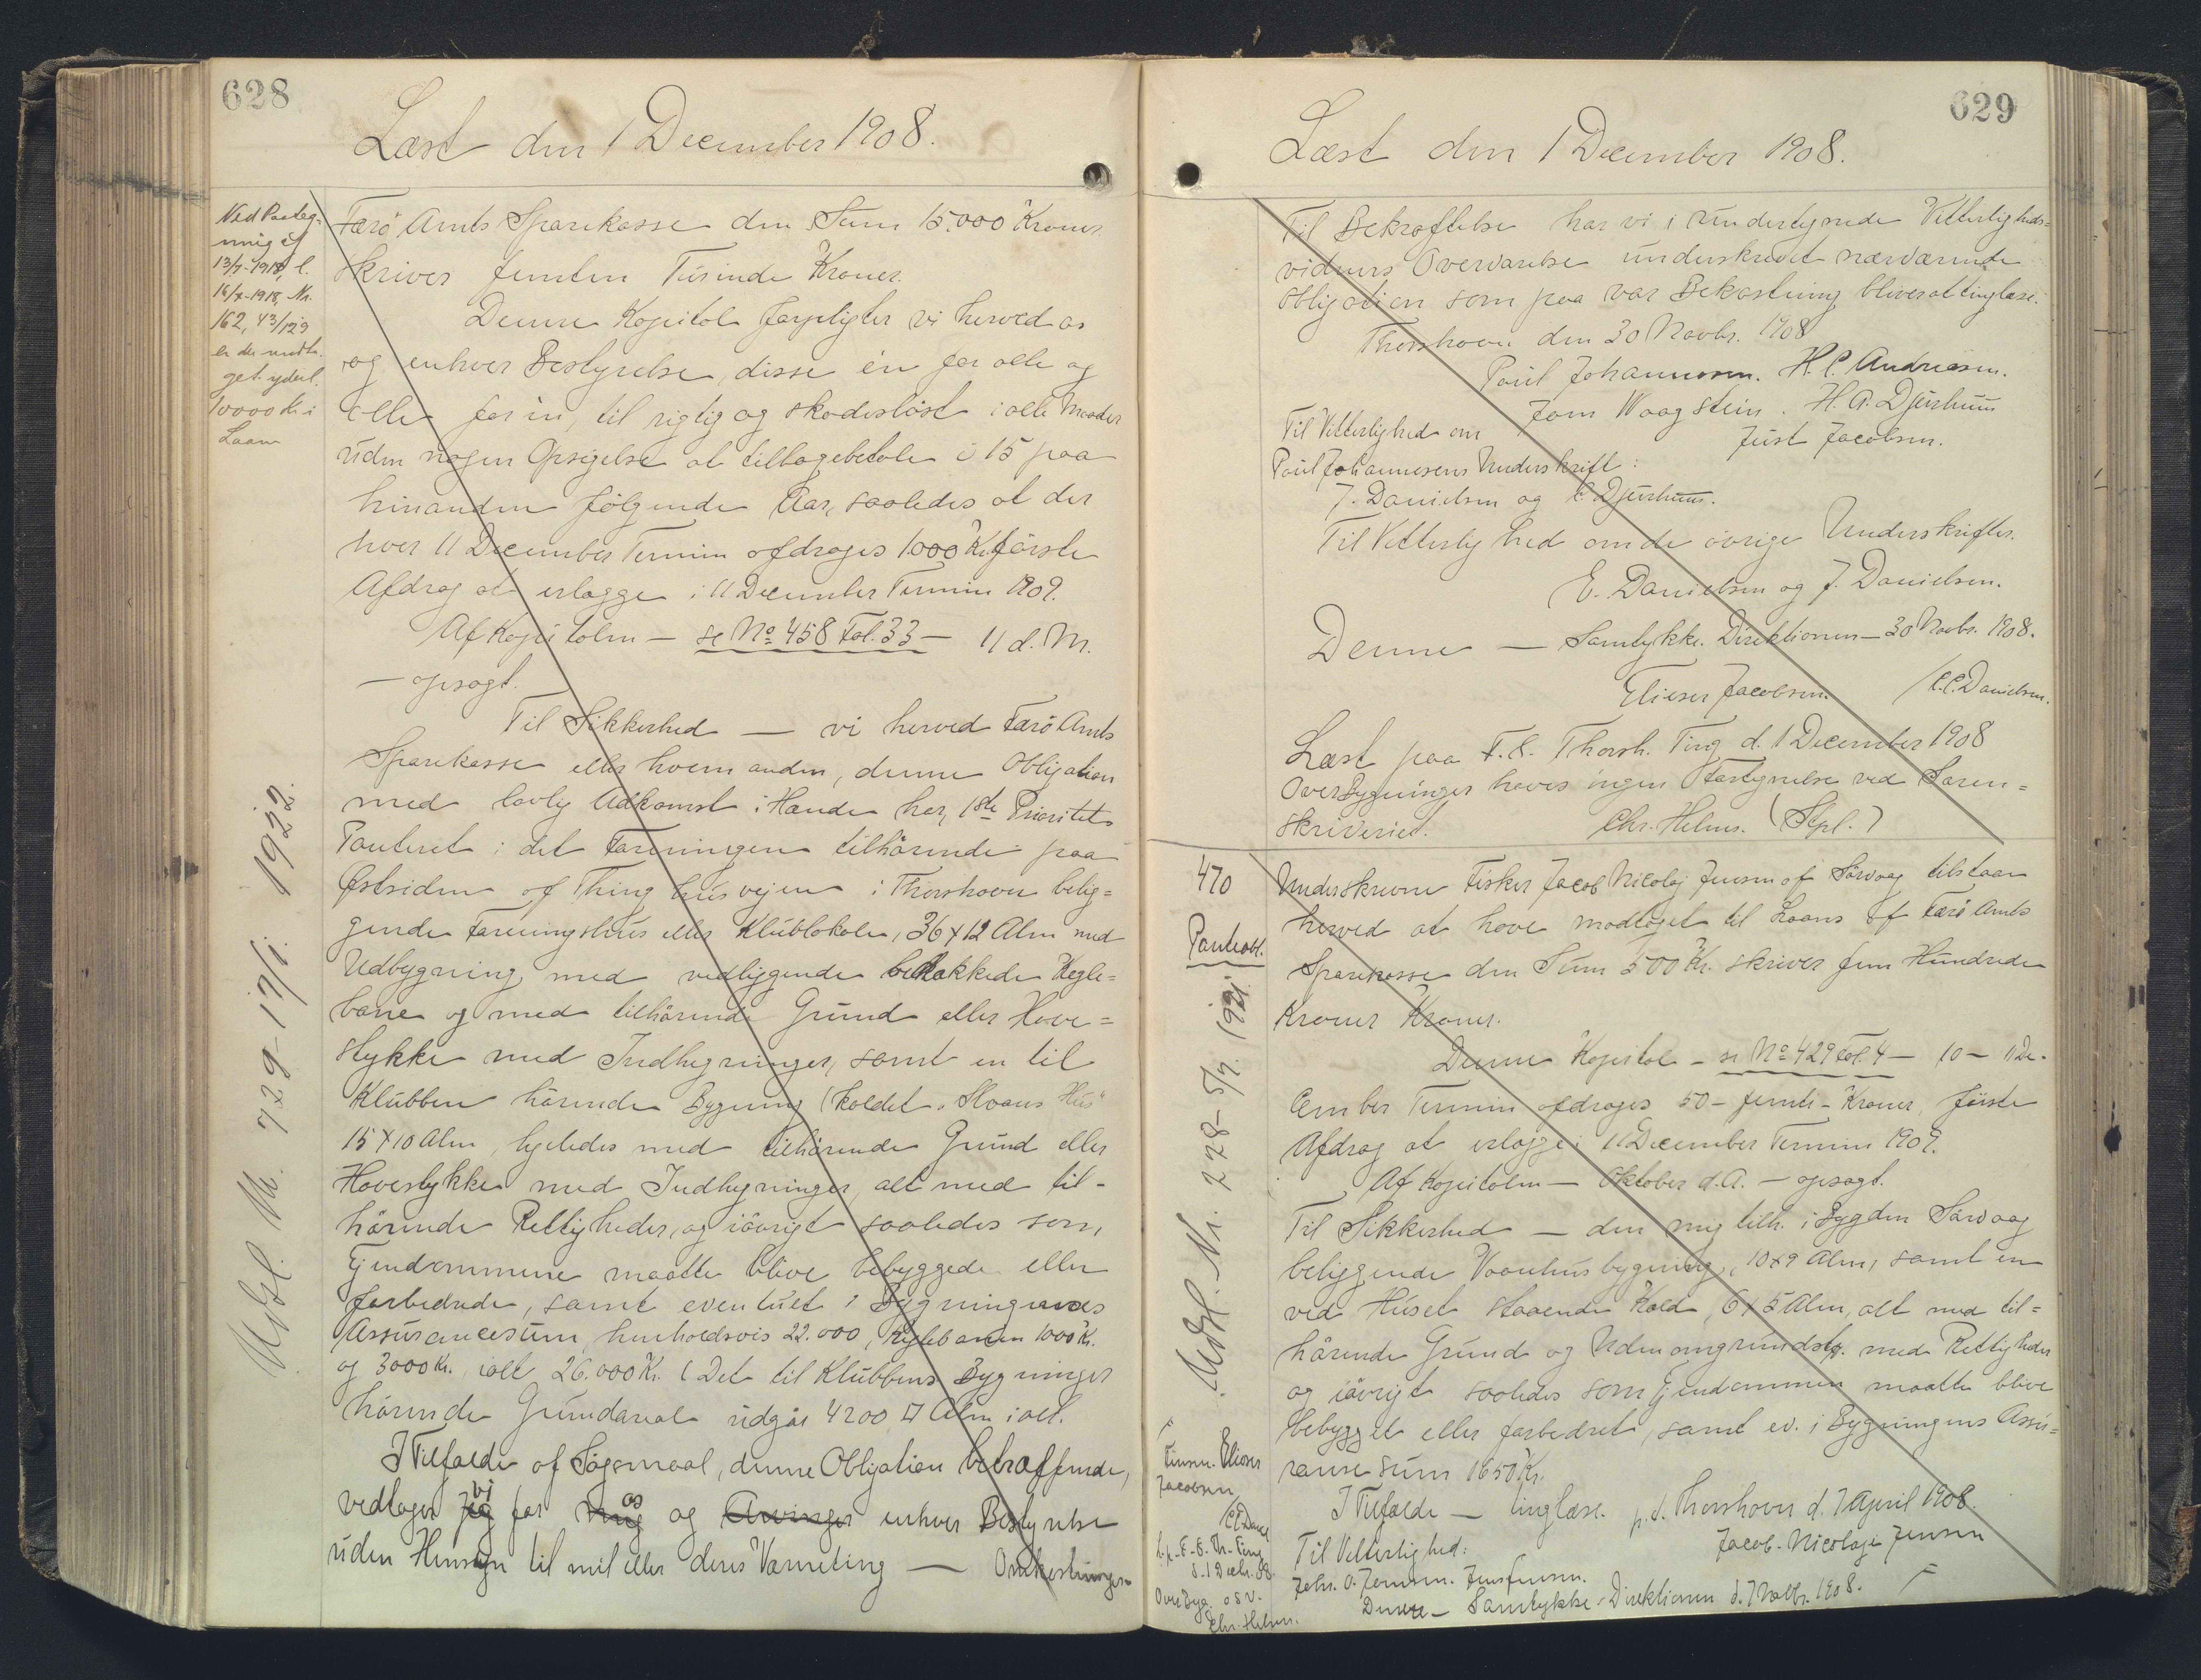 628
Læst den 1 December 1908.
Ved Paateg-
ning af
13/7-1918, l.
16/7-1918, Nr.
162, 43/129
er der modta-
get yderl.
10000 Kr i
Laan
Færø Amts Sparekasse den Sum 15.000 Kroner
skriver femten Tusinde Kroner.
Denne Kapital forpligter vi herved os
og enhver Bestyrelse, disse én for alle og
alle for én, til rigtig og skadesløst i alle Maader
uden nogen Opsigelse at tilbagebetale i 15 paa
hinanden følgende Aar, saaledes at der
hver 11 December Termin afdrages 1000 Kr. første
Afdrag at erlægge i 11 December Termin 1909.
Af Kapitalen — se No 458 Fol. 33 — 11 d. M.
— opsagt.
Til Sikkerhed — vi herved Færø Amts
Sparekasse eller hvem anden, denne Obligation
med lovlig Adkomst i Hænde har, 1ste Prioritets
Panteret i det Foreningen tilhørende paa
Østsiden af Thinghusvejen i Thorshavn belig-
gende Foreningshus eller Klublokale, 36 x 12 Alen med
Udbygning med vedliggende betakkede Kegle-
bane og med tilhørende Grund eller Have-
stykke med Indhegninger, samt en til
Klubben hørende Bygning (kaldet "Sloans Hus"
15 x 10 Alen, ligeledes med tilhørende Grund eller
Havestykke med Indhegninger, alt med til-
hørende Rettigheder, og iøvrigt saaledes som,
Ejendommene maatte blive bebyggede eller
forbedrede, samt eventuelt i Bygningernes
Assurancesum, henholdsvis 22.000, Keglebanen 1000 Kr.
og 3000 Kr., ialt 26.000 Kr. (Det til Klubbens Bygninger
hørende Grundareal udgør 4200 □ Alen ialt.
I Tilfælde af Søgsmaal, denne Obligation betræffende,
vedtager jeg vi for mig os og Arvinger enhver Bestyrelse
uden Hensyn til mit eller deres Værneting — Omkostninger
Udsl. Nr. 729 - 17/1. 1922.
629
Læst den 1 December 1908.
Til Bekræftelse har vi i undertegnede Vitterligheds-
vidners Overværelse underskrevet nærværende
Obligation som paa vor Bekostning bliver at tinglæse.
Thorshavn den 30 Novbr. 1908
Poul Johannesen. H. P. Andreasen.
Joen Waagstein. H. A. Djurhuus
Just Jacobsen.
Til Vitterlighed om
Poul Johannesens Underskrift:
J. Danielsen og C. Djurhuus.
Til Vitterlighed om de øvrige Underskrifter.
E. Danielsen og J. Danielsen.
Denne — Samtykke. Direktionen — 30 Novbr. 1908.
Elieser Jacobsen. /C.C. Danielsen.
Læst paa F.S. Thorsh. Ting d. 1 December 1908
Over Bygninger haves ingen Fæstegivelse ved Soren-
skriveriet. Chr. Helms. (Stpl.)
470
Pantobl.
Underskrevne Fisker Jacob Nicolaj Jensen af Sörvaag tilstaar
herved at have modtaget til Laans af Færø Amts
Sparekasse den Sum 500 Kr. skriver fem Hundrede
Kroner Kroner.
Denne Kapital — se No 429 Fol. 4 — 10 — 11 De-
cember Termin afdrages 50 - femti - Kroner, første
Afdrag at erlægge i 11 December Termin 1909.
Af Kapitalen — Oktober d.A. — opsagt.
Til Sikkerhed — den mig tilh. i Bygden Sørvaag
beliggende Vaanhusbygning, 10 x 9 Alen, samt en
ved Huset staaende Kold, 6 x 5 Alen, alt med til-
hørende Grund og Udenomgrundst. med Rettigheder
og iøvrigt saaledes som Ejendommen maatte blive
bebygget eller forbedret, samt ev. i Bygningens Assu-
rancesum 1650 Kr.
I Tilfælde — tinglæse. p.t. Thorshavn d. 7 April 1908.
Jacob. Nicolaje Jensen
Til Vitterlighed:
Johs. O. Jensen.
Denne — Samtykke. Direktionen d. 7 Novbr. 1908.
Udsl. Nr. 228 - 5/7. 1921.
Elieser
Jacobsen
/C.C. Danl
L. p. F.S. Th. Ting
d. 1 Decbr. 08.
Over Byg. o s v.
Chr. Helms.